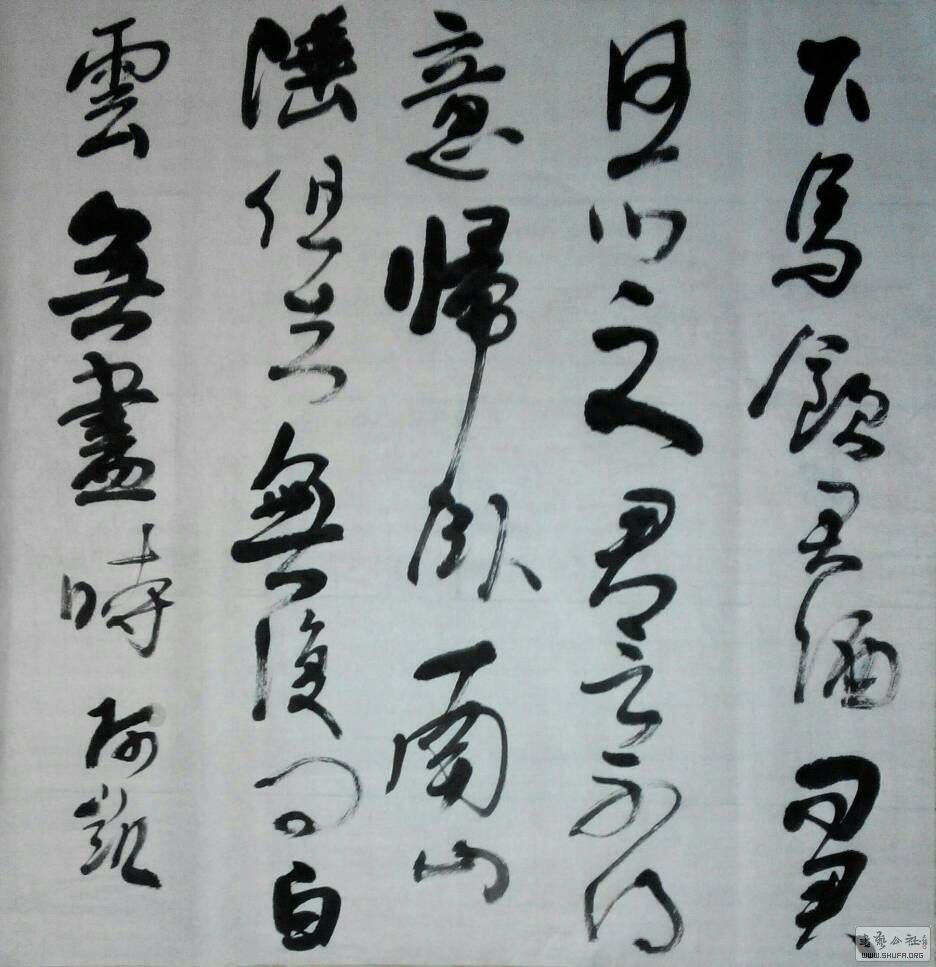 下馬飲君酒問君
所之君言不得
意帰臥南山
陲但去無復问白
雲無盡時 阿凱
书艺公社
WWW.SHUFA.ORG